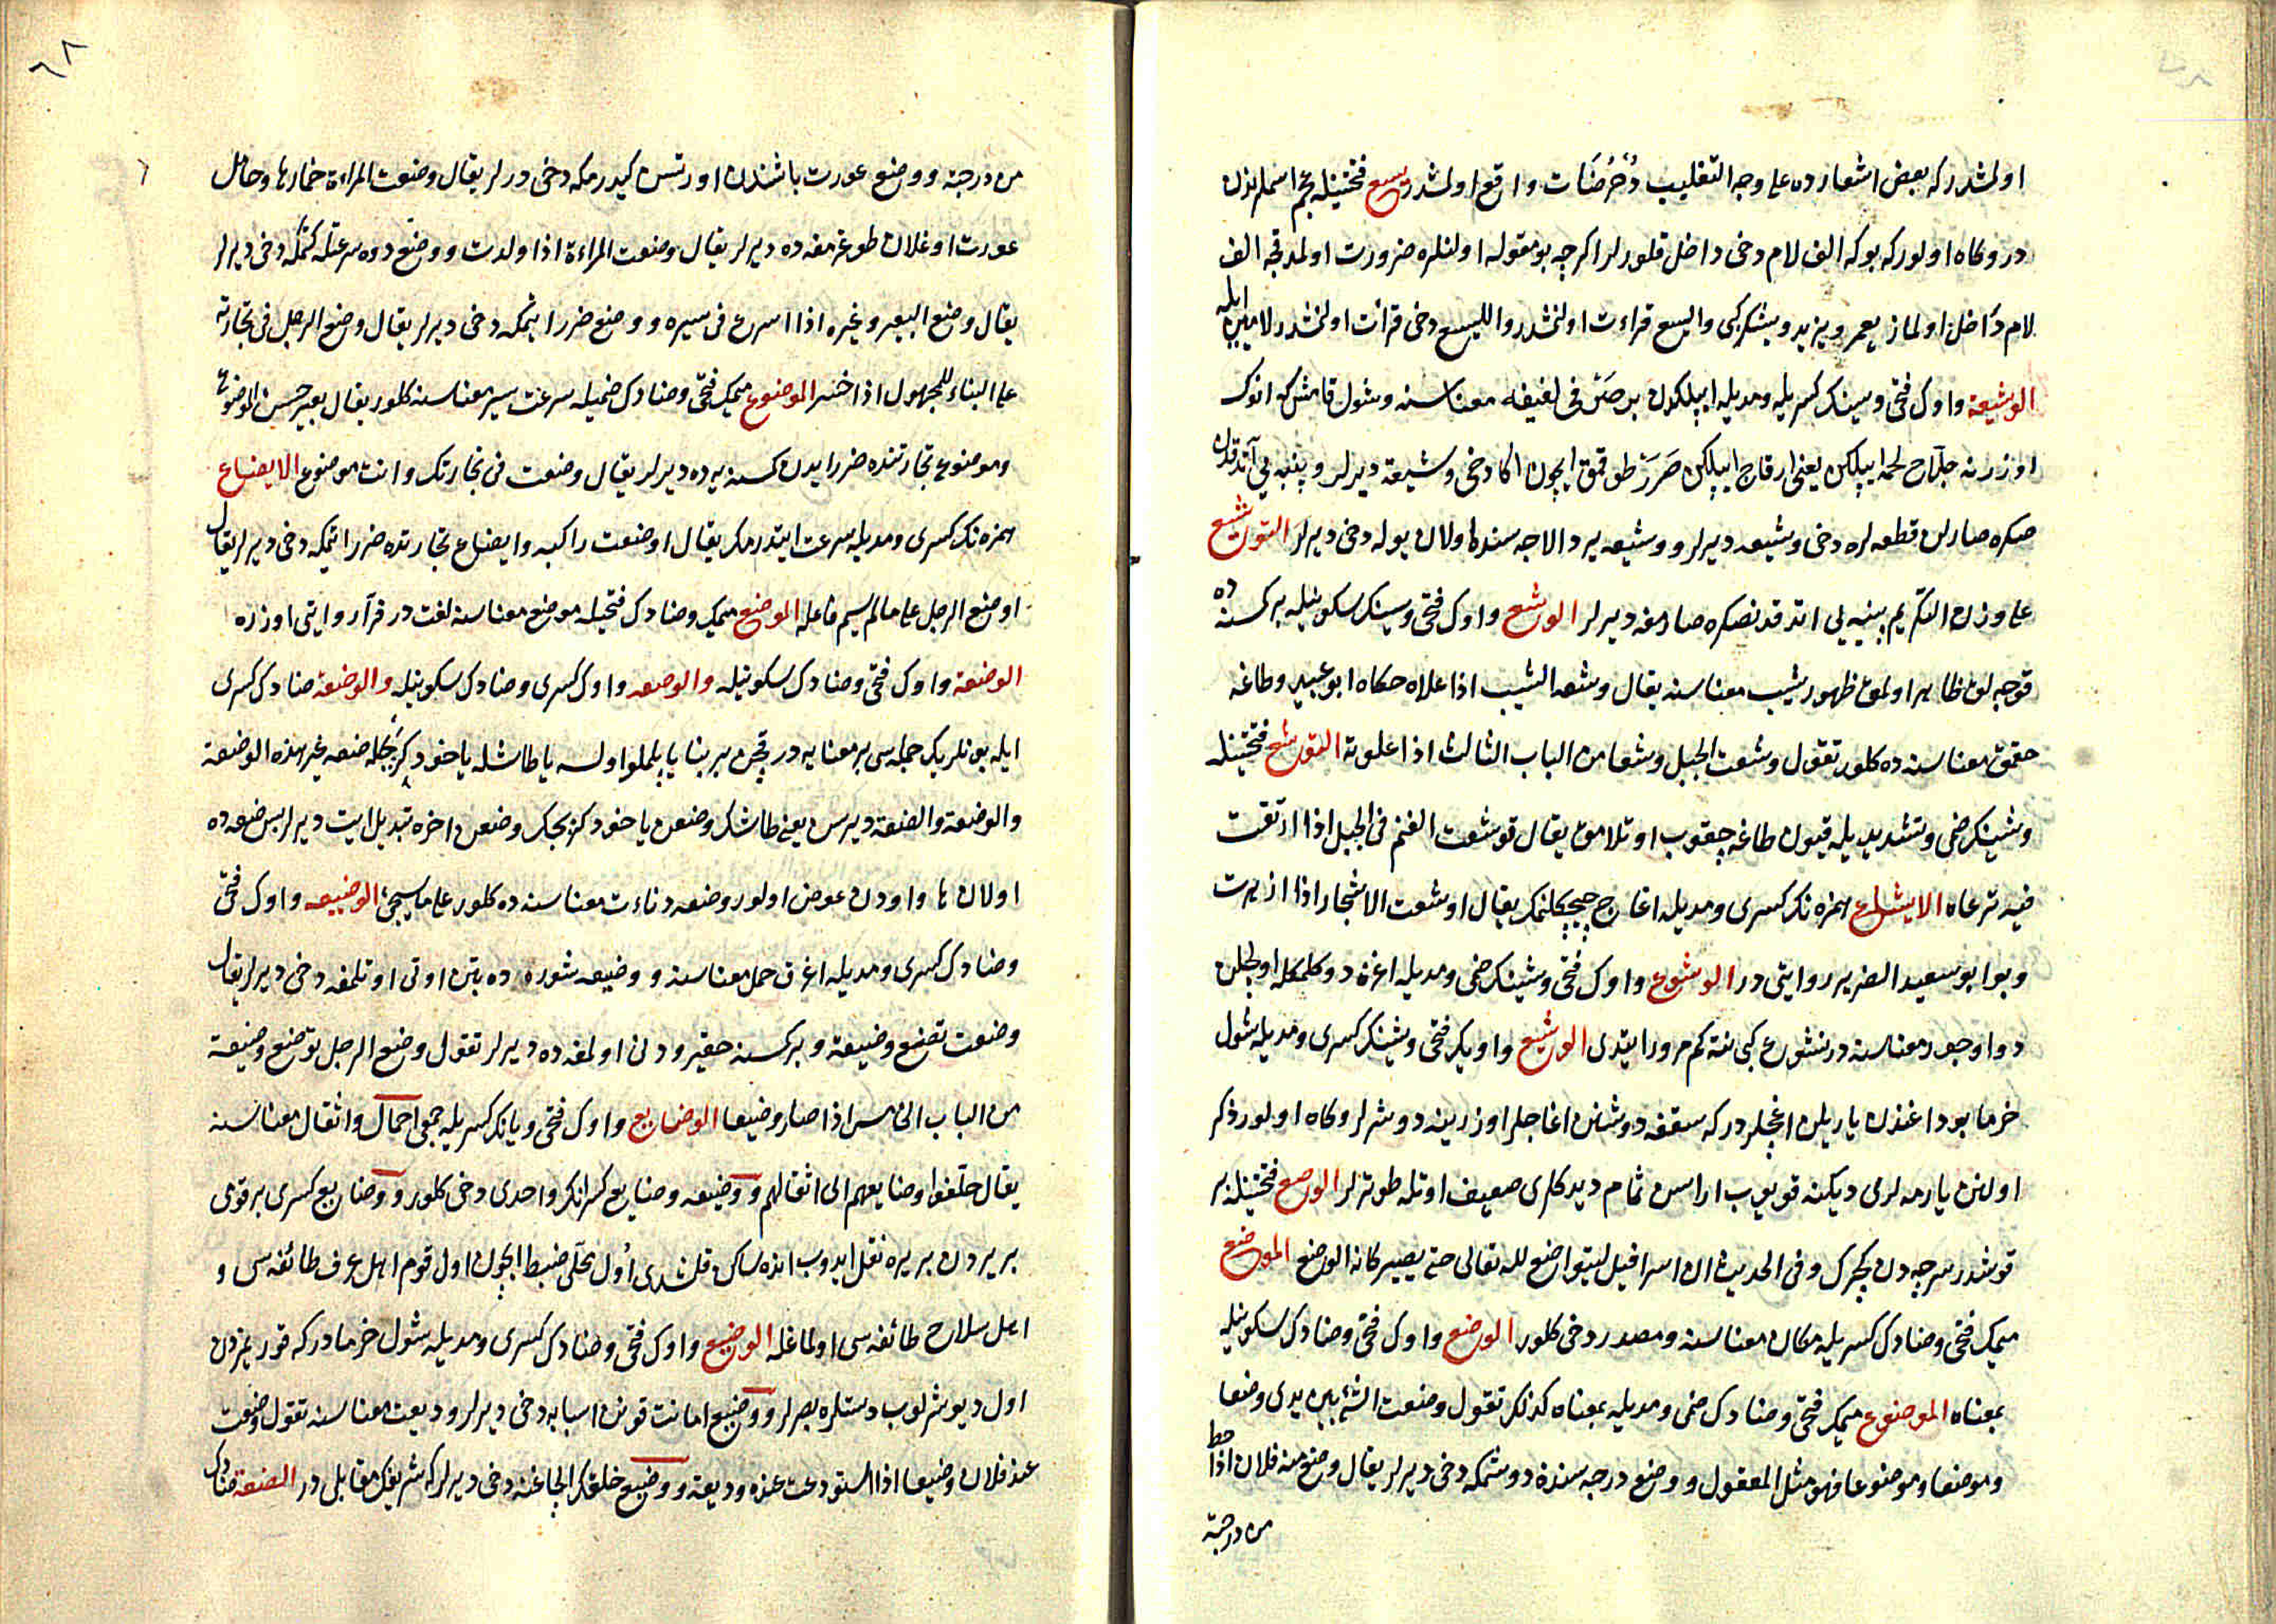 اولمشدر كه بعض اشعارده على وجه التغليب دُخْرُضَنَات واقع اولمشدر يسع فتحتينله عجم اسملرندن
در وكاه اولور كه بوكه الف لام دخى داخل قلورلر اكرچه بو مقوله اولنلره ضرورت اولمدقجه الف
لام داخل اولماز يعمر ويزيد ويشكر كبى واليسع قراءت اولنمشدر والليسع دخى قرائت اولنمشدر لامين ايله
الوشيعة واوك فتحى وسينك كسريله ومديله ايپلكدن لفيفه معناسنه وشول قامش كه انوك
اوزرنه جلاح لحمه ايپلكن يعنى ارقاج ايپلكن صرر طوقمق ايچون اكا دخى وشيعة ديرلر وپنبه يى آتدقدن
صكره صاريلن قطعه لره دخى وشيعه ديرلر ووشيعه يرد الاجه سنده اولان يوله دخى ديرلر التوشيع
على وزن التكريم پنبه يى اتدقدنصكره صارمغه ديرلر الوشع واوك فتحى وسينك سكونيله بر كسنه ده
قوجه لق ظاهر اولمق ظهور شيب معناسنه يقال وشعه الشيب اذا علاه حكاه ابو عبيد وطاغه
چقمق معناسنه ده كلور تقول وشعت الجبل وشعا من الباب الثالث اذا علوته التوشع فتحتينله
وشينك ضمى وتشديديله قيون طاغه چقوب اوتلامق يقال توشعت الغنم فى الجبل اذا ارتقت
فيه ترعاه الايشاع همزه نك كسرى ومديله اغاج چيچكلنمك يقال اوشعت الاشجار اذا ازهرت
وبو ابو سعيد الضرير روايتى در الوشوع واوك فتحى وشينك ضمى ومديله اغزه دوكلمكله اويجلن
دوا وجور معناسنه در نشوع كبى نته كم مرور ايتدى الوشيع واويك فتحى وشينك كسرى ومديله شول
خرما بوداغندن ياريلن اغجلردر كه سقفه دوشنن اغاجلر اوزرينه دوشرلر وكاه اولور ذكر
اولنن يارمه لرى ديكنه قويوب اراسن ثمام ديدكلرى ضعيف اوتله طوتزلر الوصع فتحتينله بر
قوشدر سرجه دن كجرك وفى الحديث ان اسرافيل ليتواضع لله تعالى حتى يصير كانه الوصع الموضع
ميمك فتحى وضادك كسريله مكان معناسنه ومصدر دخى كلور الوضع واوك فتحى وضادك سكونيله
بمعناه الموضوع ميمك فتحى وضادك ضمى ومديله بمعناه كذلك تقول وضعت الشئ بين يدى وضعا
وموضعا وموضوعا فهو مثل المعقول ووضع درجه سندن دوشمكه دخى ديرلر يقال وضع منه فلان اذا حط
من درجته
٦٨
من درجته ووضع عورت باشندن اورتسن كيدرمكه دخى درلر يقال وضعت المراءة خمارها وحامل
عورت اوغلان طوغرمغه ده ديرلر يقال وضعت المراءة اذا ولدت ووضع دوه سرعتله كتمكه دخى ديرلر
يقال وضع البعير وغيره اذا اسرع فى سيره ووضع ضرر ايتمكه دخى ديرلر يقال وضع الرجل فى تجارته
على البناء للمجهول اذا خسر الموضوع ميمك فتحى وضادك ضميله سرعت سير معناسنه كلور يقال بعير حسن الموضوع
وموضوع تجارتنده ضرر ايدن كسنه يه ده ديرلر يقال وضعت فى تجارتك وانت موضوع الايضاع
همزه نك كسرى ومديله سرعت ايتدرمك يقال اوضعت راكبه وايضاع تجارتده ضرر اتمكه دخى ديرلر يقال
اوضع الرجل على ما لم يسم فاعله الموضع ميمك وضادك فتحيله موضع معناسنه لغت در فرآ روايتى اوزره
الوضعة واوك فتحى وضادك سكونيله والوضعه واوك كسرى وضادك سكونيله والوضعة ضادك كسرى
ايله بونلريك جمله سى بر معنايه در قچن بر بنا ياپلملو اولسه يا طاشله ياخود كرپجكله ضعه غير هذه الوضعة
والوضعة والضعة ديرسن يعنى طاشك وضعن ياخود كرپجك وضعن اخره تبديل ايت ديرلر پس ضعه ده
اولان ها واودن عوض اولور وضعه دناءت معناسنه ده كلور على ما سيجئ الوضيعه واوك فتحى
وضادك كسرى ومديله اغرق حمل معناسنه ووضيعه شوره ده بتن اوتى اوتلمغه دخى ديرلر يقال
وضعت تضع وضيعة وبر كسنه حقير ودنى اولمغه ده ديرلر تقول وضع الرجل يوضع وضيعة
من الباب الخامس اذا صار وضيعا الوضايع واوك فتحى ويانك كسريله جمعى احمال واثقال معناسنه
يقال خلفوا وضايعهم الى اثقالهم ووضيعه وضايع كسرانك واحدى دخى كلور ووضايع كسرى بر قومى
بر يردن بر يره نقل ايدوب انده ساكن قلنشدى اول محلى ضبط ايچون اول قوم اهل عرف طائفه سى و
اهل سلاح طائفه سى اولماغله الوضيع واوك فتحى وضادك كسرى ومديله شول خرمادر كه قوريمزدن
اول ديوشرلوب دستلره بصرلر ووضيع امانت قونن اسبابه دخى ديرلر وديعت معناسنه تقول وضعت
عند فلان وضيعا اذا استودعت عنده وديعة ووضيع خلقك الچاغنه دخى ديرلر كه شريفك مقابلى در الضعة ضادك